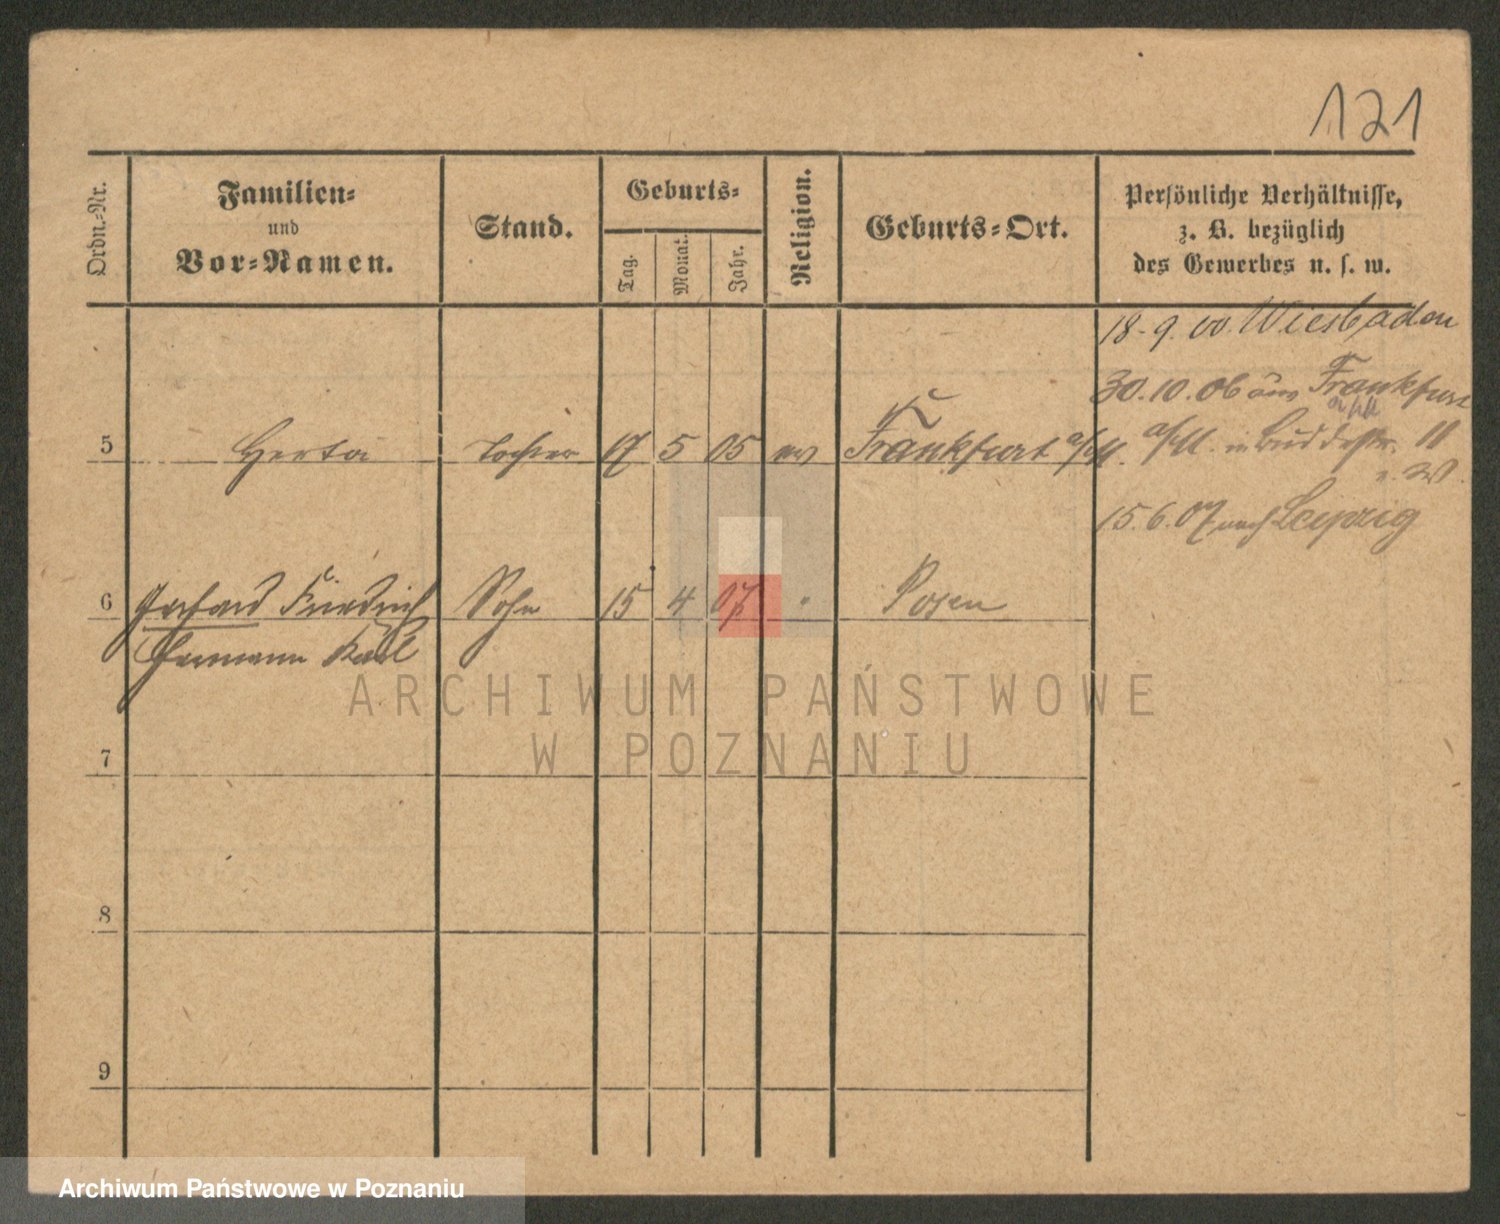 121
Ordn.-Nr.
Familien-
und
Vor-Namen.
Stand.
Geburts-
Tag.
Monat.
Jahr.
Religion.
Geburts-Ort.
Persönliche Verhältnisse,
z. B. bezüglich
des Gewerbes u. s. w.
18.9.00 Wiesbaden
30.10.06 aus Frankfurt
a/M. in
5 Herta Tochter 17 5 05 ev Frankfurt a/M.
15.6.07 nach Leipzig
6 Gerhard Friedrich Sohn 15 4 07 " Posen
Hermann Karl
ARCHIWUM PAŃSTWOWE
W POZNANIU
7
8
9
Archiwum Państwowe w Poznaniu